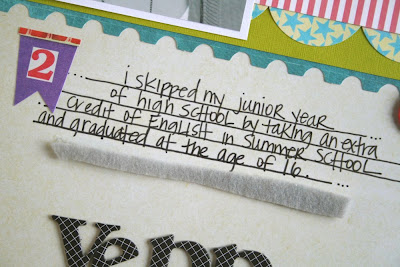 2
... i skipped my junior year ...
... of high SCHOOL by taking an extra
... credit of ENGliSH in SummER SCHOOL
and graduated at the age of 16. ...